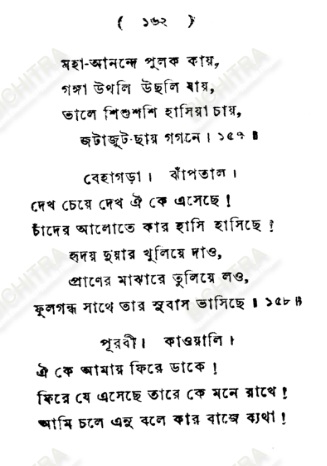 ( ১৬২ )
মহা-আনন্দে পুলক কায়,
গঙ্গা উথলি উছলি যায়,
ভালে শিশুশশি হাসিয়া চায়,
জটাজুট-ছায় গগনে। ১৫৭॥
বেহাগড়া। ঝাঁপতাল।
দেখ চেয়ে দেখ ঐ কে এসেছে!
চাঁদের আলোতে কার হাসি হাসিছে!
হৃদয় দুয়ার খুলিয়ে দাও,
প্রাণের মাঝারে তুলিয়ে লও,
ফুলগন্ধ সাথে তার সুবাস ভাসিছে॥ ১৫৮॥
পূরবী। কাওয়ালি।
ঐ কে আমায় ফিরে ডাকে!
ফিরে যে এসেছে তারে কে মনে রাখে!
আমি চলে এনু বলে কার বাজে ব্যথা!